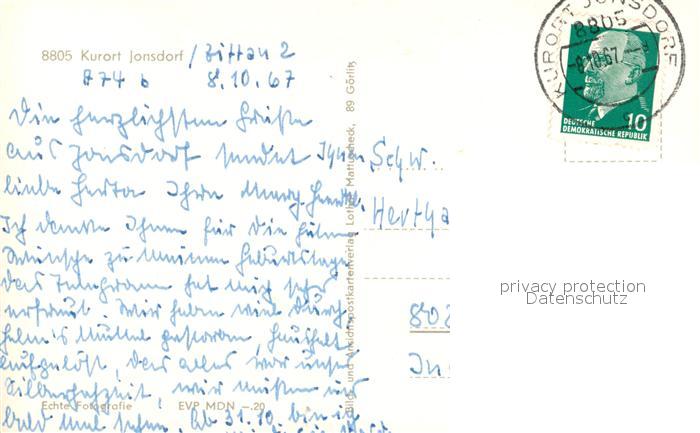 8805 Kurort Jonsdorf / Zittau 2
874 b 8.10.67
Die herzlichsten Grüße
aus Jonsdorf sendet Ihnen, Schw.
liebe Herta Ihre
Ich danke Ihnen für die guten
Wünsche zu meinem Geburtstage
das Telegramm hat mich sehr
erfreut. Wir haben
Mutter gestorben, Haushalt
aufgelöst, das alles vor unserer
Silberhochzeit, wir müssen uns
bald mal sehen. Ab 31.10 bin ich
Schw.
Hertha
802
Echte Fotografie EVP MDN -.20
Bild- und Ansichtspostkartenverlag Lothar Mattischeck, 89 Görlitz
KURORT JONSDORF
8805
-8.10.67.
10
DEUTSCHE
DEMOKRATISCHE REPUBLIK
privacy protection
Datenschutz